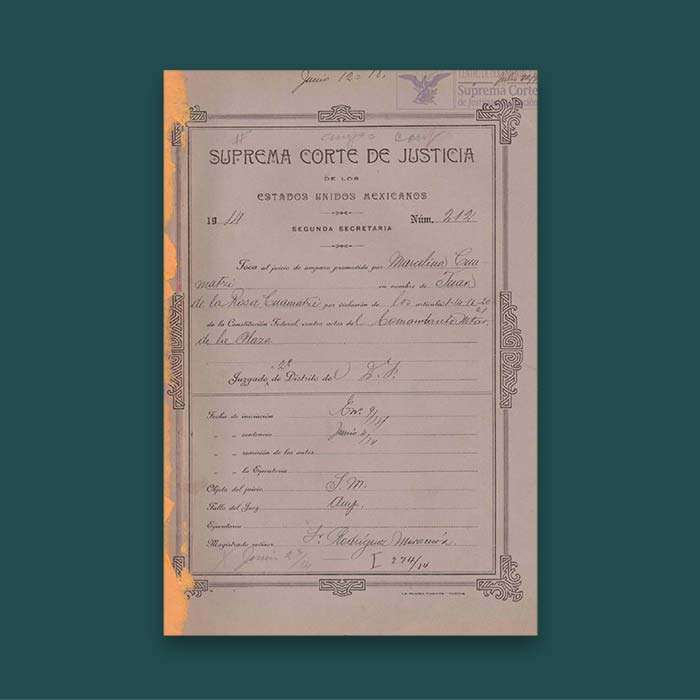 Junio 12 = 18.
Suprema Corte
SUPREMA CORTE DE JUSTICIA
DE LOS
ESTADOS UNIDOS MEXICANOS
1914 Núm. 212
SEGUNDA SECRETARIA
Toca al juicio de amparo promovido por Marcelina Cua-
matzi en nombre de Juan
de la Rosa Cuamatzi por violación de los artículos 14-16-20
de la Constitución Federal, contra actos del Comandante Mtar.
de la Plaza
2º
Juzgado de Distrito del D. F.
Fecha de iniciación Enº 9/
„ „ sentencia Junio 4/14
„ „ remisión de los autos
„ „ la Ejecutoria
Objeto del juicio S. M.
Fallo del Juez Amp.
Ejecutoria
Magistrado Sr. Rodríguez Miramón
Junio 27/ I 274/14